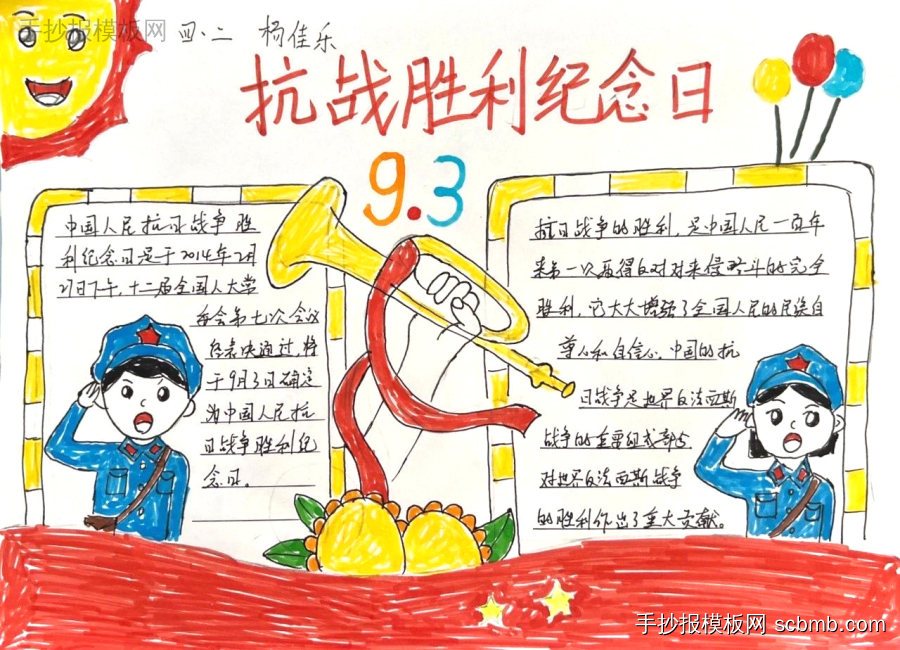 手抄报模板网
四.二 杨佳乐
抗战胜利纪念日
9.3
中国人民抗日战争胜
利纪念日是于2014年2月
27日下午,十二届全国人大常
委会第七次会议
经表决通过,将
于9月3日确定
为中国人民抗
日战争胜利纪
念日。
抗日战争的胜利,是中国人民一百年
来第一次取得反对外来侵略斗的完全
胜利,它大大增强了全国人民的民族自
尊心和自信心,中国的抗
日战争是世界反法西斯
战争的重要组成部分
对世界反法西斯战争
的胜利作出了重大贡献。
手抄报模板网 scbmb.com